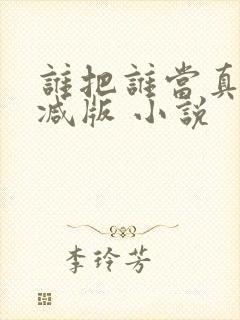 誰把誰當真
减版 小説
李玲芳